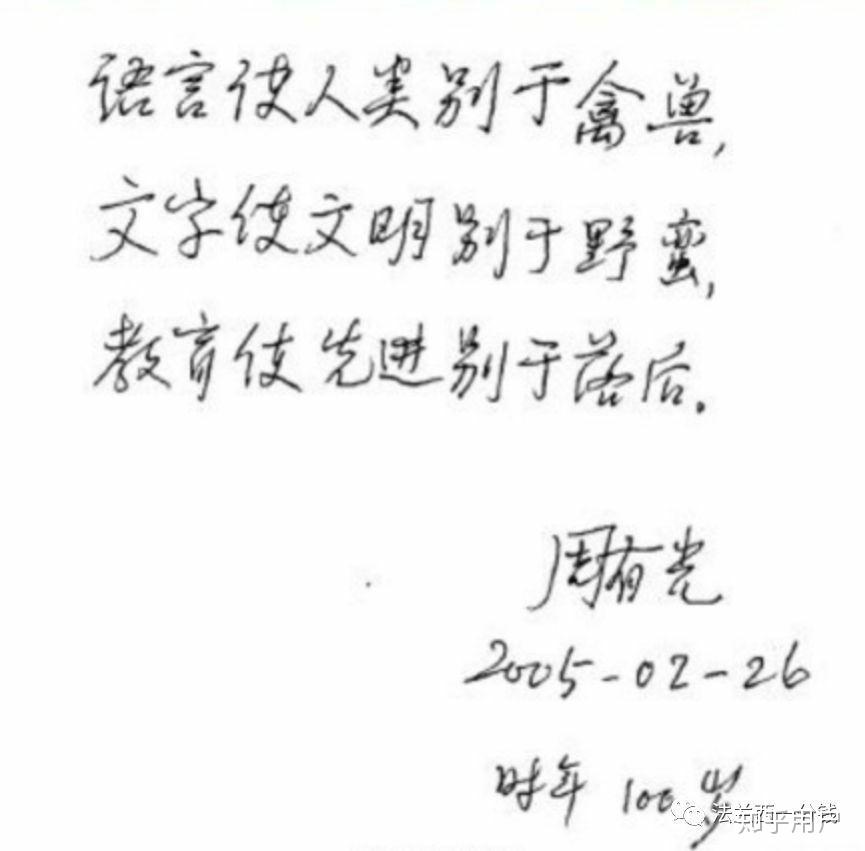 语言使人类别于禽兽，
文字使文明别于野蛮，
教育使先进别于落后。
周有光
2005-02-26
时年 100岁
法兰西一分钱
知乎用户